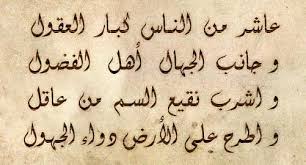 عاشر من الناس كبار العقول
و جانب الجهال أهل الفضول
و اشرب نقيع السم من عاقل
و اطرح على الأرض دواء الجهول